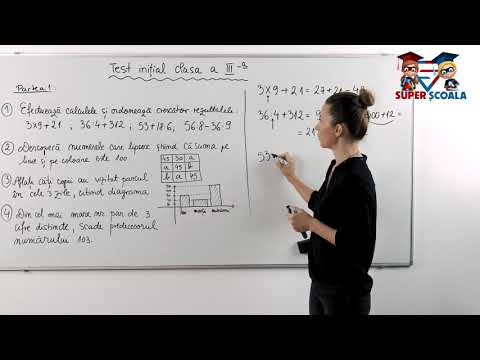 Test inițial clasa a III-a
SUPER ȘCOALA
Partea I.
1 Efectuează calculele și ordonează crescător rezultatele:
3x9+21 ; 36:4+312 ; 53+17·6 ; 56:8-36:9
2 Descoperă numerele care lipsesc știind că suma pe
linie și pe coloane este 100.
45 30 a
a 45 b
b a 45
3 Aflați câți copii au vizitat parcul
în cele 3 zile, citind diagrama.
luni marți miercuri
4 Din cel mai mare nr. par de 3
cifre distincte, scade predecesorul
numărului 103.
3x9+21 = 27+21 =
36:4+312 = 9
00+12 =
= 21
53